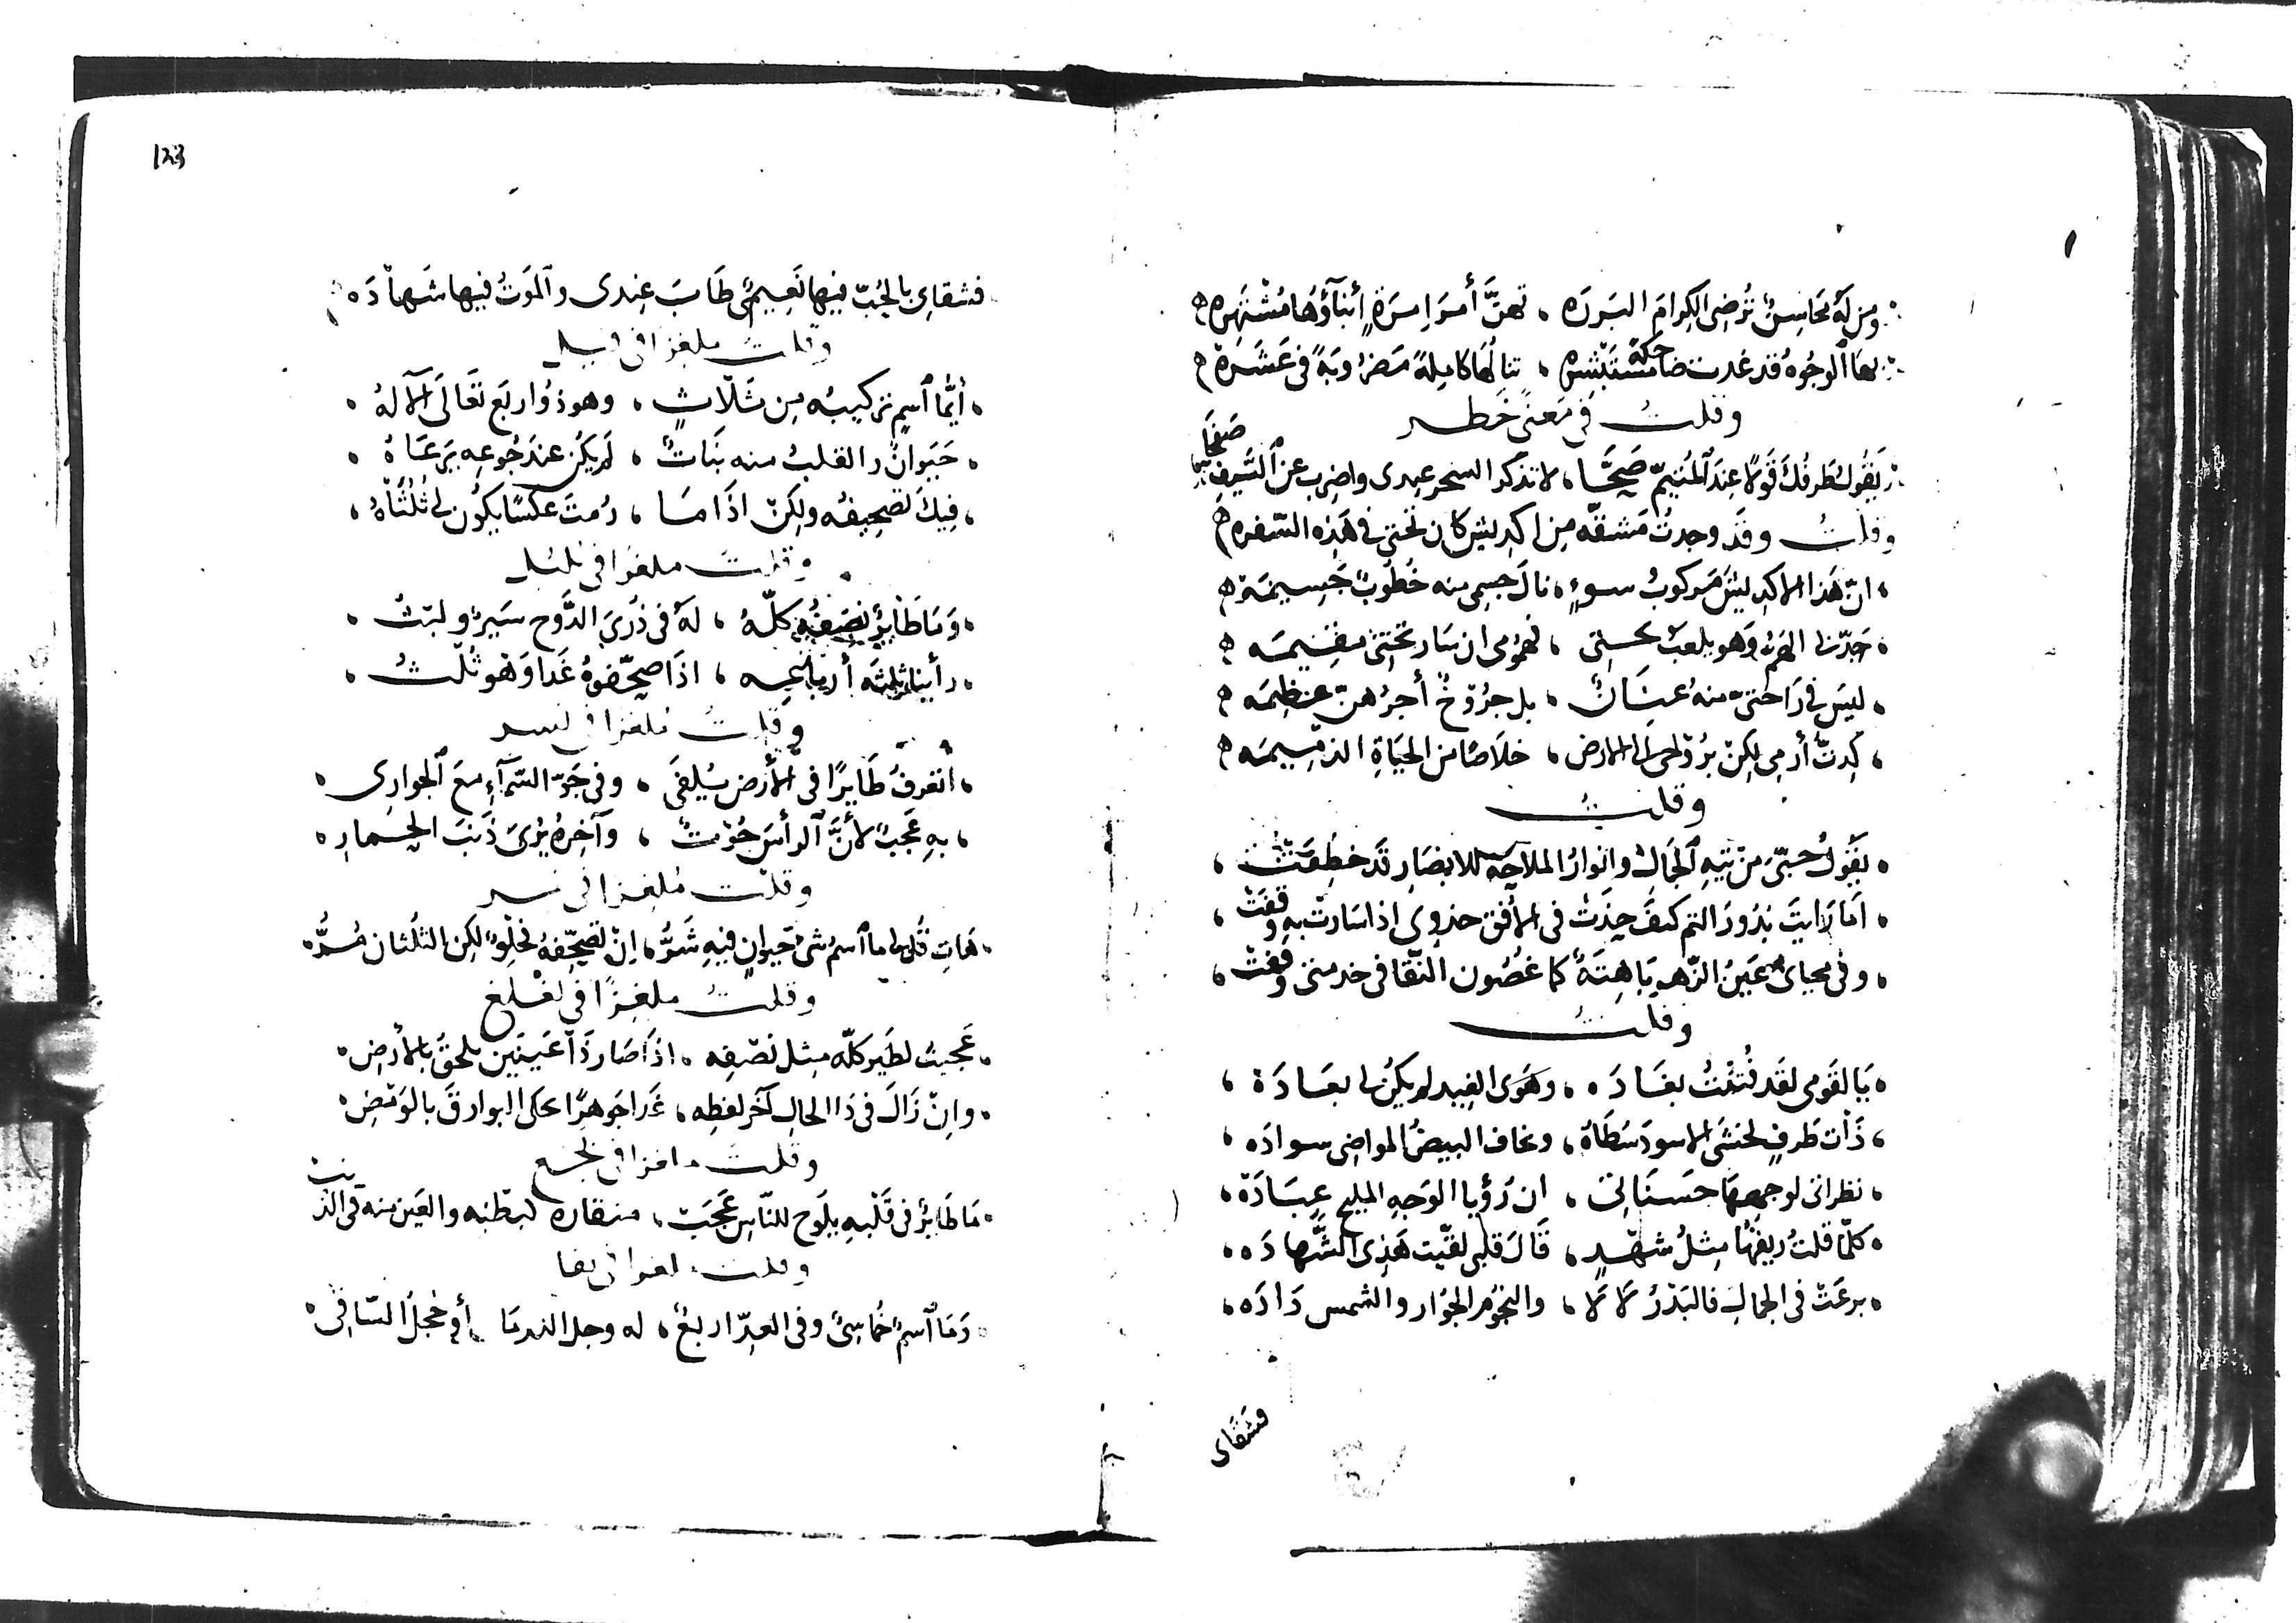 ومن له محاسن ترضى الكرام البررة ، تهن أمرا مرة أبناؤها مشتهره
بها الوجوه قد غدت ضاحكة مستبشره ، تنالها كاملة مضروبة في عشرة
وقلت في معنى خطر
يقول طرفك قولا عند المتيم صحيحا ، لا تذكر السحر عندى واضرب عن السيف صفحا
وقلت وقد وجدت مشقة من اكديش كان تحتي في هذه السفره
ان هذا الاكديش مركوب سوء ، نال جسمى منه خطوب جسيمة
جدّنا الهرم وهو يلعب تحتى ، فهمومى ان سار تحتى مقيمه
ليس في راحتي منه عنان ، بل جروح أجرهن عظيمه
كدت أرمى لكن روحى الى الارض ، خلاصا من الحياة الذميمه
وقلت
يقول حبى من تيه الجمال وانوار الملاحة للابصار قد خطفت ،
اما رايت بدور التم كيف حذت في الأفق حذوى اذا سارت به وقفت ،
وفي محياى عين الزهر باهتة كما غصون النقا في خدمتى وقفت ،
وقلت
يا لقومى لقد فتنت بغاده ، وهوى الغيد لم يكن لى بعادة ،
ذات طرف تخشى الاسود سطاه ، وتخاف البيض المواضى سواده ،
نظراتى لوجهها حسناتى ، ان رؤيا الوجه المليح عبادة ،
كلما قلت ريقها مثل شهد ، قال قلبى لقيت هذى الشهاده ،
برعت في الجمال فالبدر لالا ، والنجوم الجوار والشمس داده ،
فشقاى
123
فشقاى بالحب فيها نعيمى طاب عندى والموت فيها شهاده
وقلت ملغزا في فيل
أيما اسم تركيبه من ثلاث ، وهو ذو اربع تعالى الاله
حيوان والقلب منه نبات ، لم يكن عند جوعه يرعاه
فيك تصحيفه ولكن اذا ما ، رمت عكسا يكون لى ثلثاه
وقلت ملغزا في بلبل
وما طائر نصفه كله ، له في ذرى الدوح سير ولبث
رأينا ثلثة أرباعه ، اذا صحفوه غدا وهو ثلث
وقلت ملغزا في نسر
اتعرف طايرا في الأرض يلفى ، وفي جو السماء مع الجوارى
به عجب لأن الرأس حوت ، وآخره يرى ذنب الحمار
وقلت ملغزا في نسر
هات قل لى ما اسم شى حيوان فيه شر ، ان تصحفه فحلو لكن الثلثان مر
وقلت ملغزا في لغلغ
عجبت لطير كله مثل نصفه ، اذا صار ذا عينين يلحق بالأرض
وان زال في ذا الحال آخر لفظه ، غدا جوهرا يحكى البوارق بالومض
وقلت ملغزا في بجع
ما طاير في قلبه يلوح للناس عجب ، منقاره لبطنه والعين منه في الذنب
وقلت ملغزا في ببغا
وما اسم خماسى وفي العد اربع ، له وجل الندما أو خجل الساقى